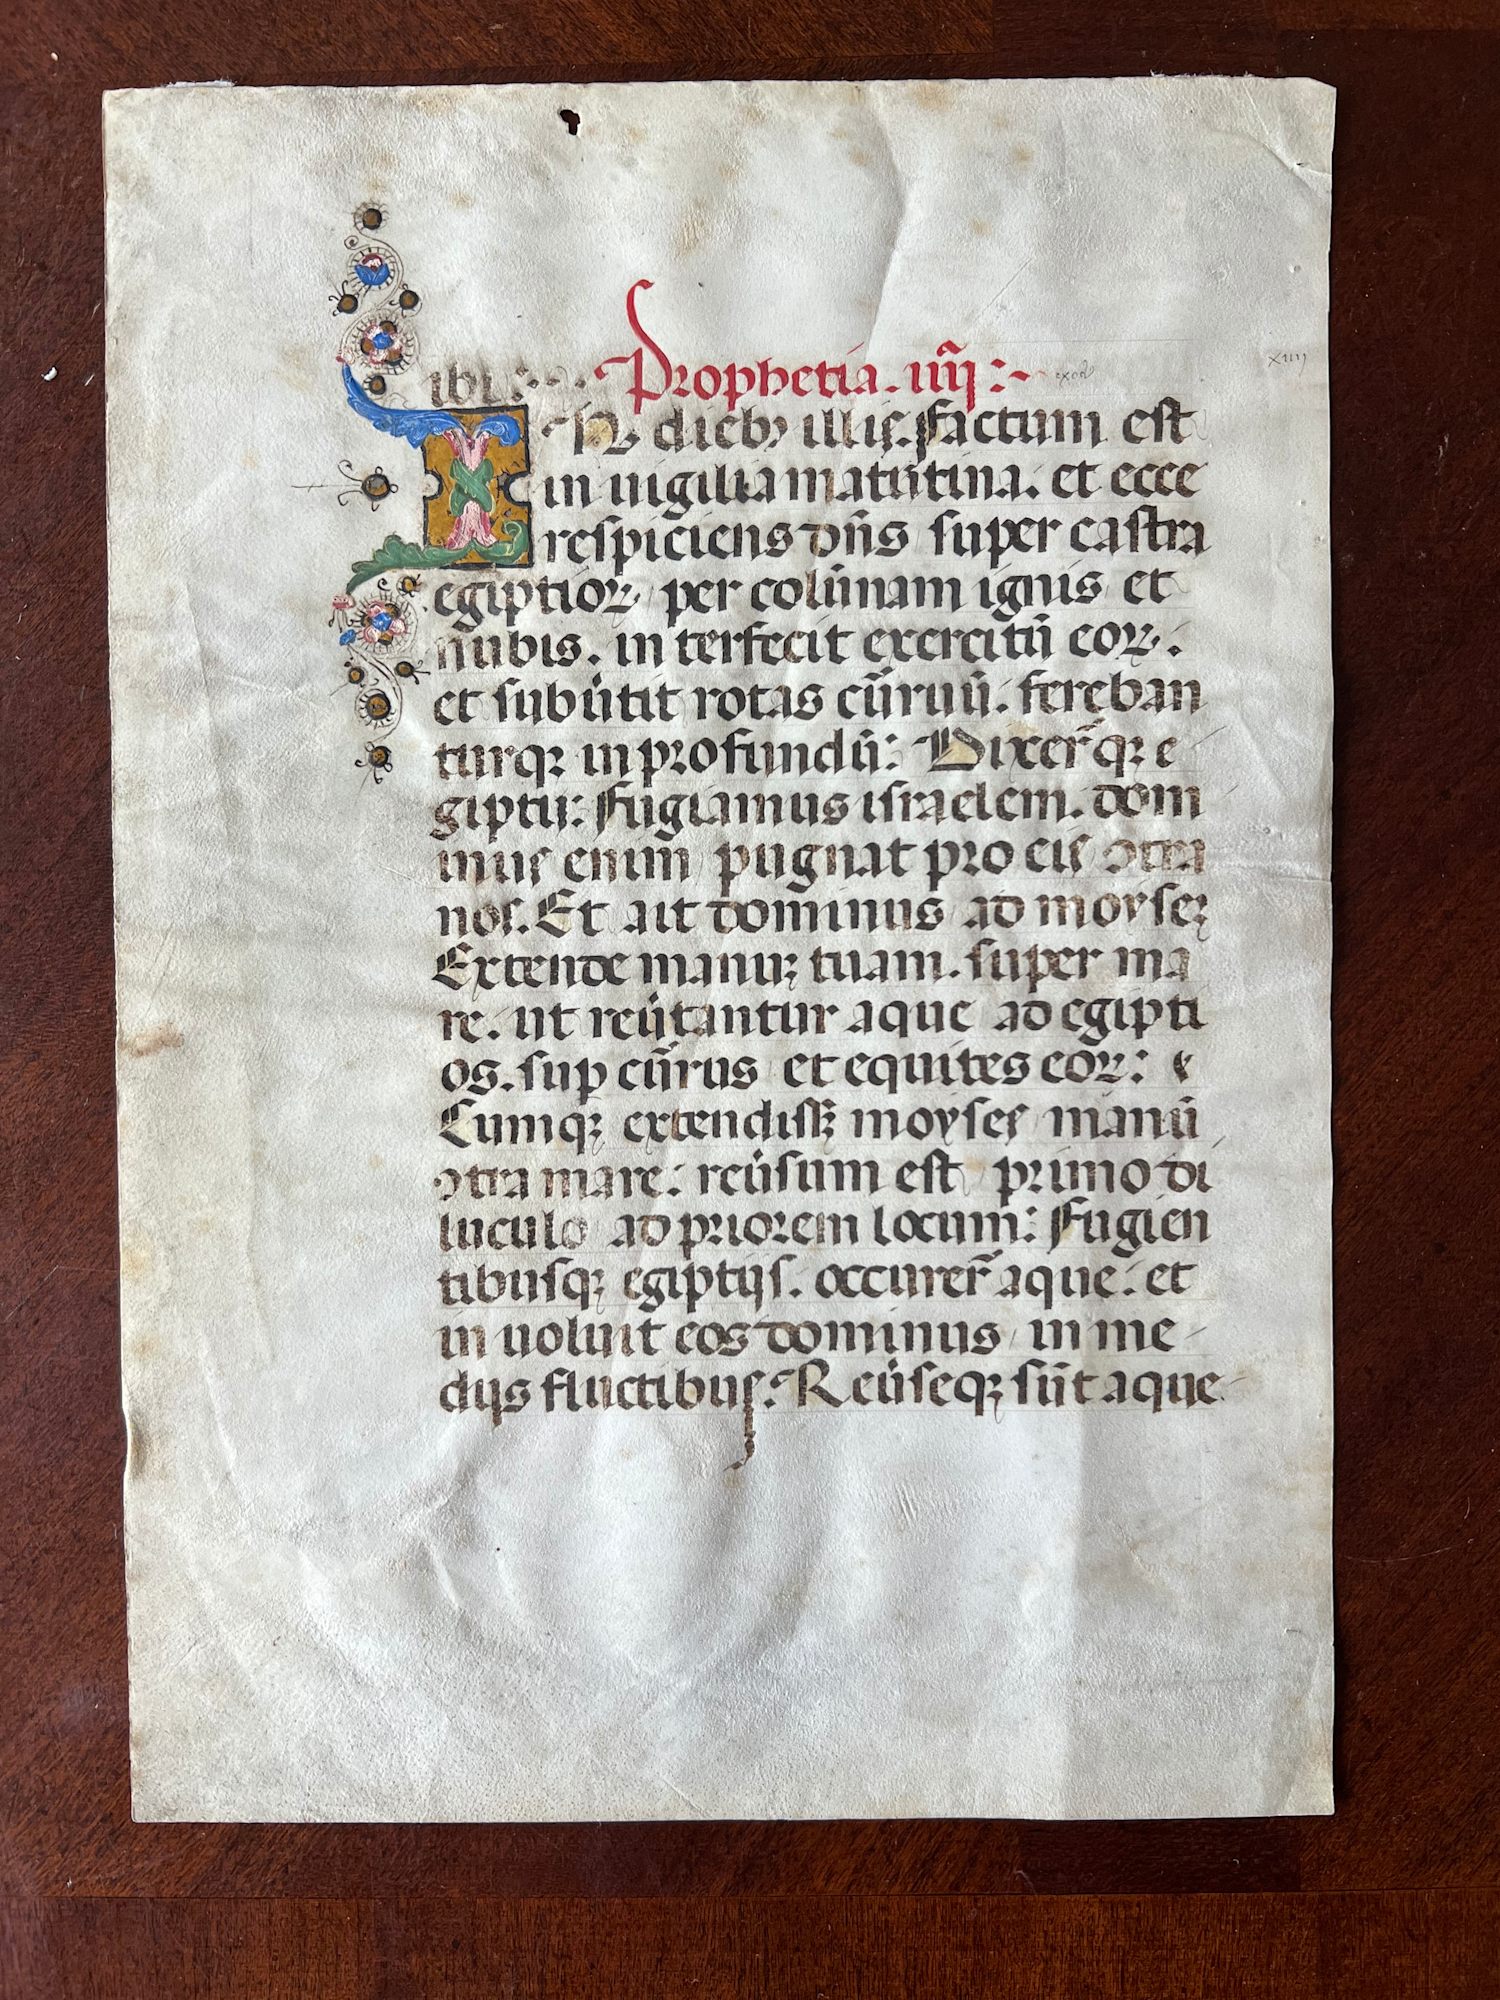 ibi: Prophetia. iiij̃ :~ exod
xiiij
IN dieb; illis. Factum est
in uigilia matutina. et ecce
respiciens dñs super castra
egiptioꝝ per colũnam ignis et
nubis. in terfecit exercitũ eoꝝ.
et subũtit rotas cũruũ. fereban
turqꝫ in profundũ: Dixer̃qꝫ e
giptij: Fugiamus israelem. dom
inus enim pugnat pro eis ꝯtra
nos. Et ait dominus ad moyseꝫ
Extende manuꝫ tuam. super ma
re. ut reũtantur aque ad egipti
os. sup cũrus et equites eoꝝ:
Cumqꝫ extendissꝫ moyses manũ
ꝯtra mare: reũsum est primo di
luculo ad priorem locum: Fugien
tibusqꝫ egiptijs. occurrer̃ aque. et
in uoluit eos dominus in me
dijs fluctibus. Reũseqꝫ sũt aque